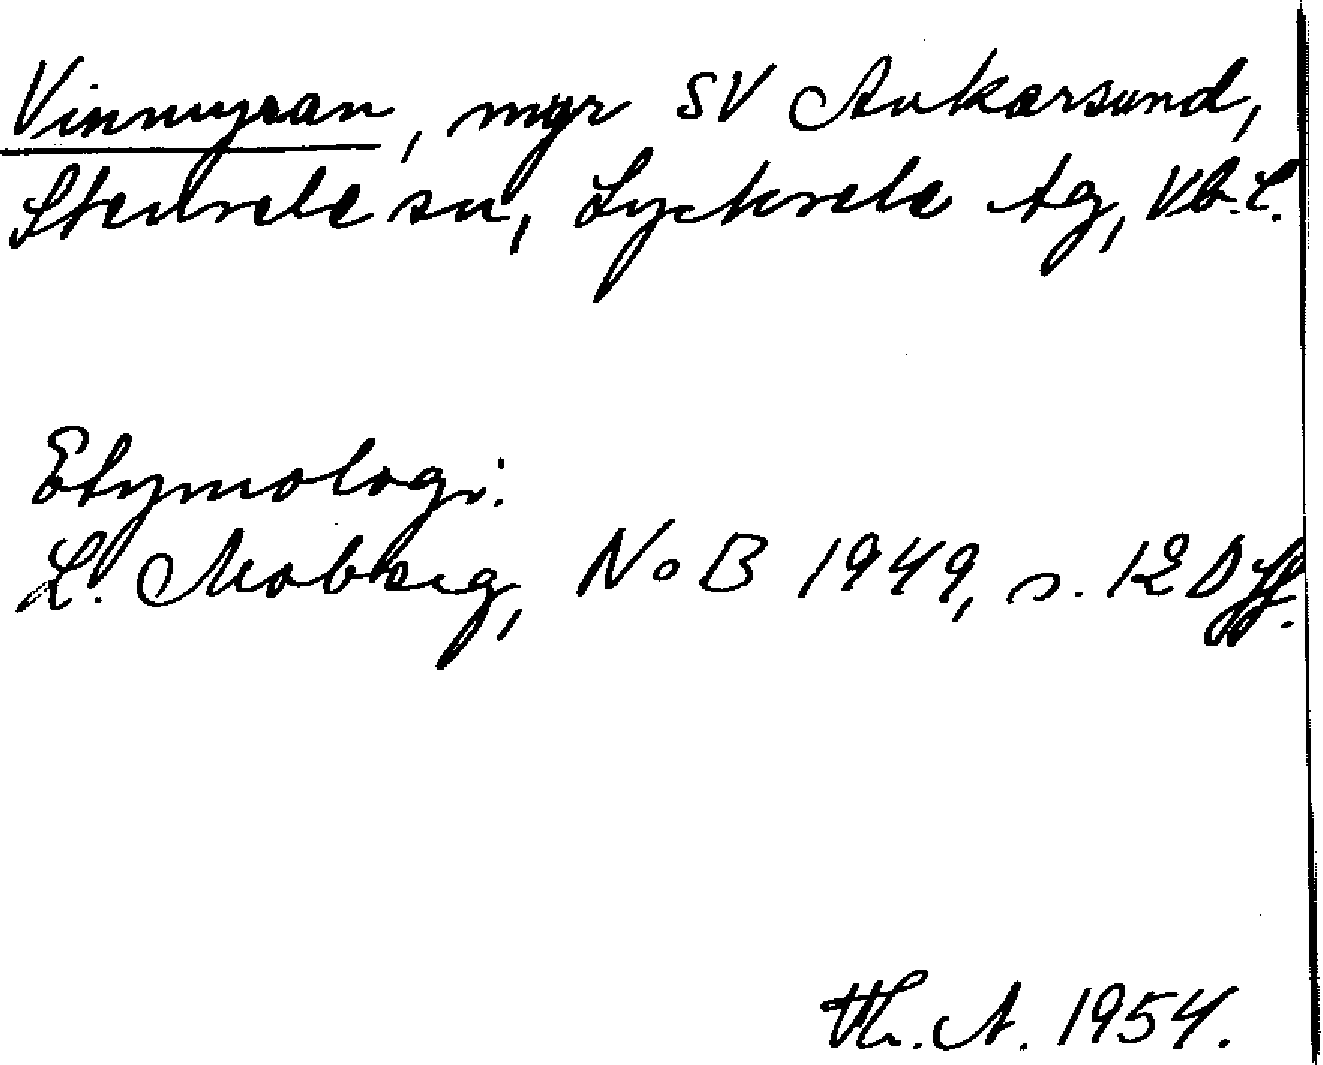 Vinmyran, myr SV Ankarsund,
Stensele sn, Lycksele tg, Vb. l.
Etymologi:
L. Moberg, NoB 1949, s. 120 ff.
Th. A. 1954.